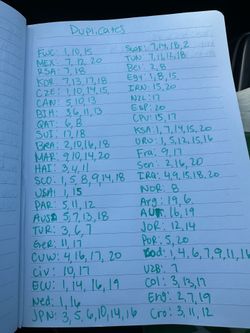 Duplicates
FWC: 1, 10, 15
MEX: 7, 12, 20
RSA: 7, 18
KOR: 7, 13, 17, 18
CZE: 1, 10, 14, 15,
CAN: 5, 10, 13
BIH: 3, 6, 11, 13
QAT: 6, 8
SUI: 17, 18
BRA: 2, 10, 16, 18
MAR: 9, 10, 14, 20
HAI: 3, 4, 11
SCO: 1, 5, 8, 9, 14, 18
USA: 1, 15
PAR: 5, 11, 12
AUS: 5, 7, 13, 18
TUR: 3, 6, 7
Ger: 11, 17
CUW: 4, 16, 17, 20
Civ: 10, 17
ECU: 1, 14, 16, 19
Ned: 1, 16
JPN: 3, 5, 6, 10, 14, 16
7, 14, 18, 2
TUN: 7, 11, 16, 18
BEL: 2, 8
EGY: 1, 8, 15
IRN: 15, 20
NZL: 17
ESP: 20
CPV: 15, 17
KSA: 1, 7, 14, 15, 20
URU: 1, 5, 12, 15, 16
Fra: 9, 17
Sen: 2, 16, 20
IRQ: 4, 9, 15, 18, 20
NOR: 8
Arg: 19, 6
AUT: 16, 19
JOR: 12, 14
Por: 5, 20
cod: 1, 4, 6, 7, 9, 11, 16
UZB: 7
Col: 3, 13, 17
Eng: 2, 7, 19
Cro: 3, 11, 12